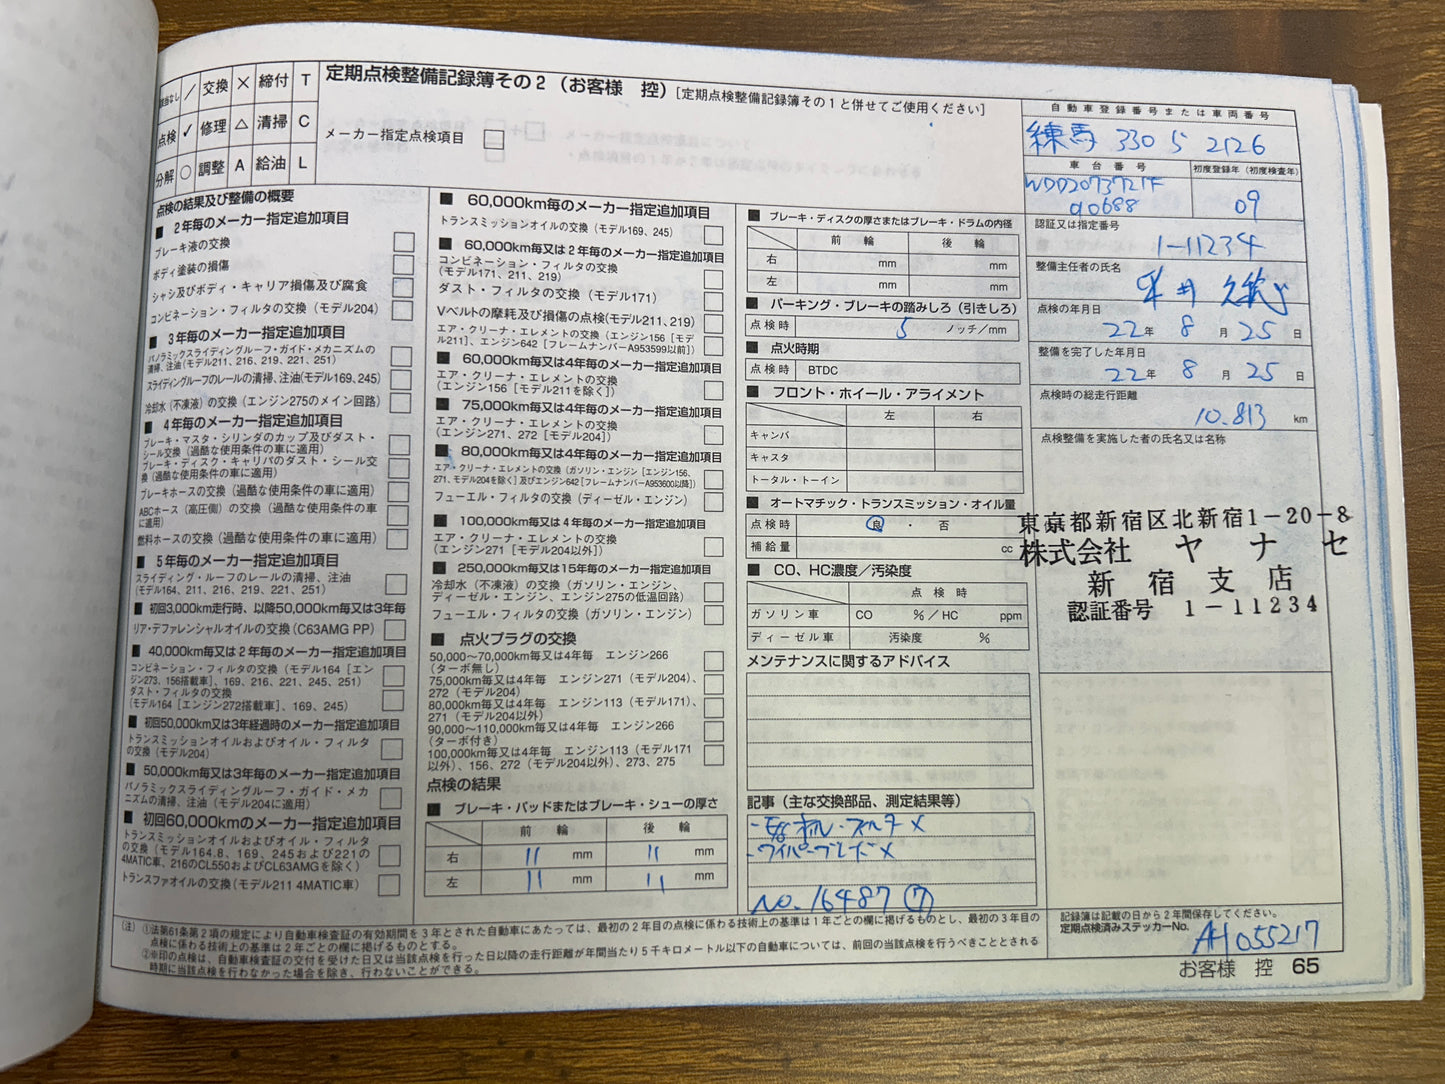 該当なし ／ 交換 ✕ 締付 T
点検 ✓ 修理 △ 清掃 C
分解 ○ 調整 A 給油 L
定期点検整備記録簿その2（お客様 控）[定期点検整備記録簿その1と併せてご使用ください]
メーカー指定点検項目 □
点検の結果及び整備の概要
■ 2年毎のメーカー指定追加項目
ブレーキ液の交換
ボディ塗装の損傷
シャシ及びボディ・キャリア損傷及び腐食
コンビネーション・フィルタの交換（モデル204）
■ 3年毎のメーカー指定追加項目
パノラミックスライディングルーフ・ガイド・メカニズムの
清掃、注油（モデル211、216、219、221、251）
スライディングルーフのレールの清掃、注油（モデル169、245）
冷却水（不凍液）の交換（エンジン275のメイン回路）
■ 4年毎のメーカー指定追加項目
ブレーキ・マスタ・シリンダのカップ及びダスト・
シール交換（過酷な使用条件の車に適用）
ブレーキ・ディスク・キャリパのダスト・シール交
換（過酷な使用条件の車に適用）
ブレーキホースの交換（過酷な使用条件の車に適用）
ABCホース（高圧側）の交換（過酷な使用条件の車
に適用）
燃料ホースの交換（過酷な使用条件の車に適用）
■ 5年毎のメーカー指定追加項目
スライディング・ルーフのレールの清掃、注油
（モデル164、211、216、219、221、251）
■ 初回3,000km走行時、以降50,000km毎又は3年毎
リア・デファレンシャルオイルの交換（C63AMG PP）
■ 40,000km毎又は2年毎のメーカー指定追加項目
コンビネーション・フィルタの交換（モデル164［エン
ジン273、156搭載車］、169、216、221、245、251）
ダスト・フィルタの交換
（モデル164［エンジン272搭載車］、169、245）
■ 初回50,000km又は3年経過時のメーカー指定追加項目
トランスミッションオイルおよびオイル・フィルタ
の交換（モデル204）
■ 50,000km毎又は3年毎のメーカー指定追加項目
パノラミックスライディングルーフ・ガイド・メカ
ニズムの清掃、注油（モデル204に適用）
■ 初回60,000kmのメーカー指定追加項目
トランスミッションオイルおよびオイル・フィルタ
の交換（モデル164.8、169、245および221の
4MATIC車、216のCL550およびCL63AMGを除く）
トランスファオイルの交換（モデル211 4MATIC車）
■ 60,000km毎のメーカー指定追加項目
トランスミッションオイルの交換（モデル169、245）
■ 60,000km毎又は2年毎のメーカー指定追加項目
コンビネーション・フィルタの交換
（モデル171、211、219）
ダスト・フィルタの交換（モデル171）
Vベルトの摩耗及び損傷の点検（モデル211、219）
エア・クリーナ・エレメントの交換（エンジン156［モデ
ル211］、エンジン642［フレームナンバーA953599以前］）
■ 60,000km毎又は4年毎のメーカー指定追加項目
エア・クリーナ・エレメントの交換
（エンジン156［モデル211を除く］）
■ 75,000km毎又は4年毎のメーカー指定追加項目
エア・クリーナ・エレメントの交換
（エンジン271、272［モデル204］）
■ 80,000km毎又は4年毎のメーカー指定追加項目
エア・クリーナ・エレメントの交換（ガソリン・エンジン［エンジン156、
271、モデル204を除く］及びエンジン642［フレームナンバーA953600以降］）
フューエル・フィルタの交換（ディーゼル・エンジン）
■ 100,000km毎又は4年毎のメーカー指定追加項目
エア・クリーナ・エレメントの交換
（エンジン271［モデル204以外］）
■ 250,000km又は15年毎のメーカー指定追加項目
冷却水（不凍液）の交換（ガソリン・エンジン、
ディーゼル・エンジン、エンジン275の低温回路）
フューエル・フィルタの交換（ガソリン・エンジン）
■ 点火プラグの交換
50,000～70,000km毎又は4年毎 エンジン266
（ターボ無し）
75,000km毎又は4年毎 エンジン271（モデル204）、
272（モデル204）
80,000km毎又は4年毎 エンジン113（モデル171）、
271（モデル204以外）
90,000～110,000km毎又は4年毎 エンジン266
（ターボ付き）
100,000km毎又は4年毎 エンジン113（モデル171
以外）、156、272（モデル204以外）、273、275
点検の結果
■ ブレーキ・パッドまたはブレーキ・シューの厚さ
前 輪 後 輪
右 11 mm 11 mm
左 11 mm 11 mm
■ ブレーキ・ディスクの厚さまたはブレーキ・ドラムの内径
前 輪 後 輪
右 mm mm
左 mm mm
■ パーキング・ブレーキの踏みしろ（引きしろ）
点検時 5 ノッチ／mm
■ 点火時期
点検時 BTDC
■ フロント・ホイール・アライメント
左 右
キャンバ
キャスタ
トータル・トーイン
■ オートマチック・トランスミッション・オイル量
点検時 良 ・ 否
補給量 cc
■ CO、HC濃度／汚染度
点 検 時
ガソリン車 CO ％／HC ppm
ディーゼル車 汚染度 ％
メンテナンスに関するアドバイス
記事（主な交換部品、測定結果等）
オイル・フィルター ✕
・ワイパーブレード ✕
No. 16487 ⑦
自動車登録番号または車両番号
練馬 330 ら 2126
車台番号 初度登録年（初度検査年）
WDD2073721F
00688 09
認証又は指定番号
1-11234
整備主任者の氏名
点検の年月日
22年 8 月 25 日
整備を完了した年月日
22年 8 月 25 日
点検時の総走行距離
10.813 km
点検整備を実施した者の氏名又は名称
東京都新宿区北新宿1－20－8
株式会社 ヤナセ
新宿支店
認証番号 1－11234
記録簿は記載の日から2年間保存してください。
定期点検済みステッカーNo.
AH055217
（注）①法第61条第2項の規定により自動車検査証の有効期間を3年とされた自動車にあたっては、最初の2年目の点検に係わる技術上の基準は1年ごとの欄に掲げるものとし、最初の3年目の
点検に係わる技術上の基準は2年ごとの欄に掲げるものとする。
②※印の点検は、自動車検査証の交付を受けた日又は当該点検を行った日以降の走行距離が年間当たり5千キロメートル以下の自動車については、前回の当該点検を行うべきこととされる
時期に当該点検を行わなかった場合を除き、行わないことができる。
お客様 控 65